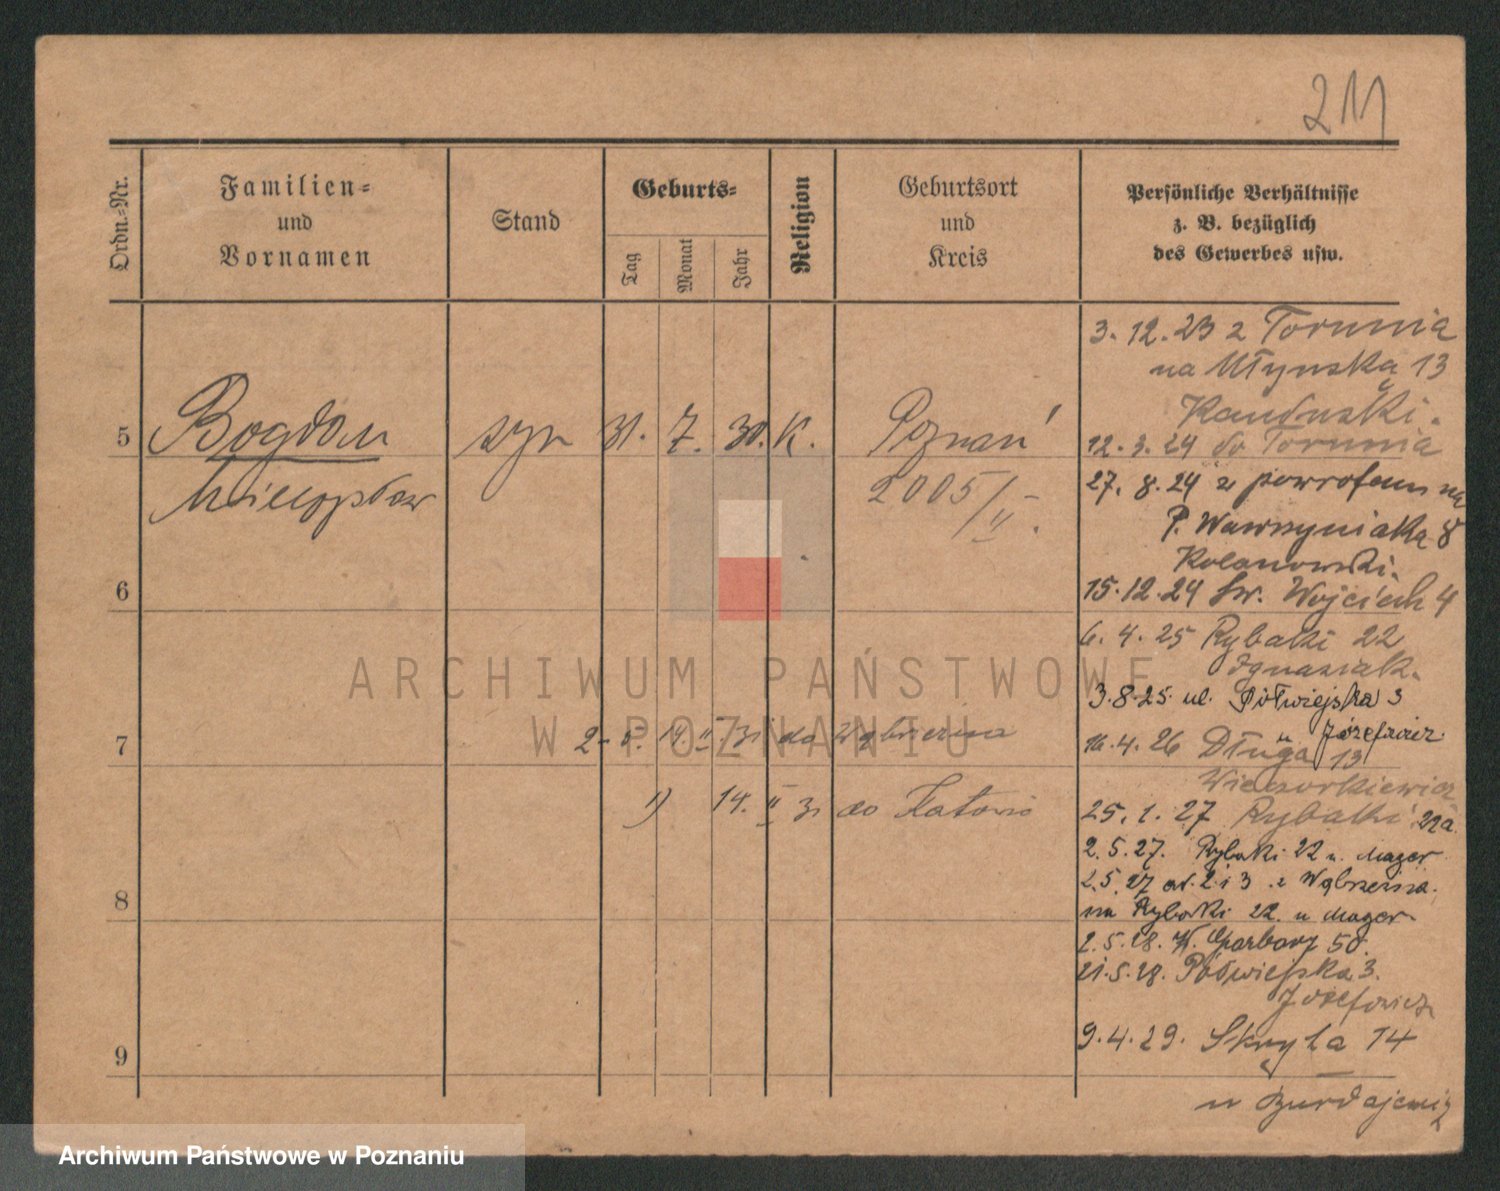 211
Ordn.-Nr.
Familien-
und
Vornamen
Stand
Geburts-
Tag
Monat
Jahr
Religion
Geburtsort
und
Kreis
Persönliche Verhältnisse
z. B. bezüglich
des Gewerbes usw.
5
Bogdan
syn 31. 7. 30. K. Poznań
2005/II.
6
7
2-5. 14. II. 31 do Wąbrzeźna
1) 14. II 31 do Katowic
8
9
3.12.23 z Torunia
na Młyńską 13
12.3.24 do Torunia
27.8.24 z powrotem na
P. Wawrzyniaka 8
Kolanowski.
15.12.24 Św. Wojciech 4
6.4.25 Rybaki 22
Ignasiak.
3.8.25 ul. Półwiejska 3
Józefowicz
16.4.26 Długa 13
Wieczorkiewicz
25.1.27 Rybaki 22a
2.5.27. Rybaki 22 u. Mager
2.5.27 2 i 3 z Wąbrzeźna.
na Rybaki 22. u Mager
2.5.28. W. Garbary 50.
21.5.28. Półwiejska 3.
Józefowicz
9.4.29. Skryta 14
ARCHIWUM PAŃSTWOWE
W POZNANIU
Archiwum Państwowe w Poznaniu